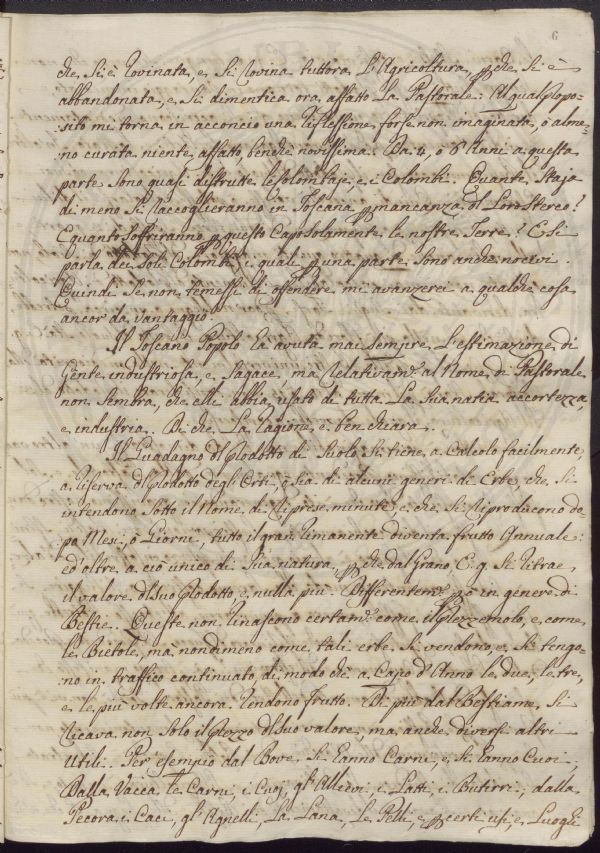 6
che si è rovinata, e si rovina tuttora L'Agricoltura, pche si è
abbandonata, e si dimentica ora affatto La Pastorale. Al qual Propo-
:sito mi torna in acconcio una riflessione forse non imaginata, ò alme-
no curata niente affatto, benche novissima. Da 4, ò 6 Anni a questa
parte sono quasi distrutte le Colombaje, e i Colombi. Quante Staja
di meno si raccoglieranno in Toscana p mancanza dl Loro Sterco?
E quanto soffriranno p questo Capo solamente le nostre Terre? E si
parla dei soli Colombi, i quali p una parte sono anche nocivi.
Quindi se non temessi di offendere mi avanzerei a qualche cosa
ancor da vantaggio.
Il Toscano Popolo hà avuta mai sempre L'estimazione di
Gente industriosa, e sagace, ma relativam.e al Nome di Pastorale
non sembra, che elli abbia usato di tutta La sua natia accortezza,
e industria. Di che La ragione è ben chiara.
Il Guadagno dl Prodotto di Suolo si tiene a Calcolo facilmente,
a riserva dl Prodotto degli Orti, ò sia di alcuni generi di Erbe, che si
intendono sotto il Nome di riprese minute, e che si riproducono do-
po Mesi, ò Giorni, tutto il gran rimanente diventa frutto Annuale:
ed oltre a ciò unico di sua natura, pche dal Grano E. g. si ritrae
il valore dl suo Prodotto, e nulla più. Differentem.e pò in genere di
Bestie. Queste non rinascono certam.e come il Prezzemolo, e come
le Bietole, ma nondimeno come tali erbe si vendono, e si tengo-
:no in traffico continuato, di modo che a Capo d'Anno le due, le tre,
e le più volte ancora rendono frutto. Di più dal Bestiame si
ricava non solo il Prezzo dl suo valore, ma anche diversi altri
Utili. Per esempio dal Bove si hanno Carni, e si hanno Cuoi,
Dalla Vacca le Carni, i Cuoj, gl'Allievi, i Latti, i Butirri; dalla
Pecora i Caci, gl'Agnelli, La Lana, Le Pelli, e p certi usi, e Luoghi